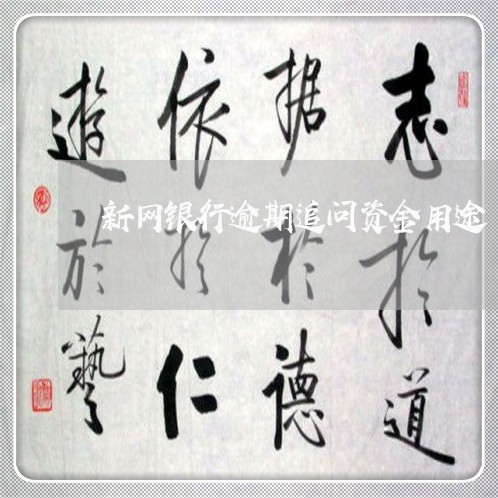 志於道
据於德
依於仁
遊於藝
新网银行逾期追问资金用途